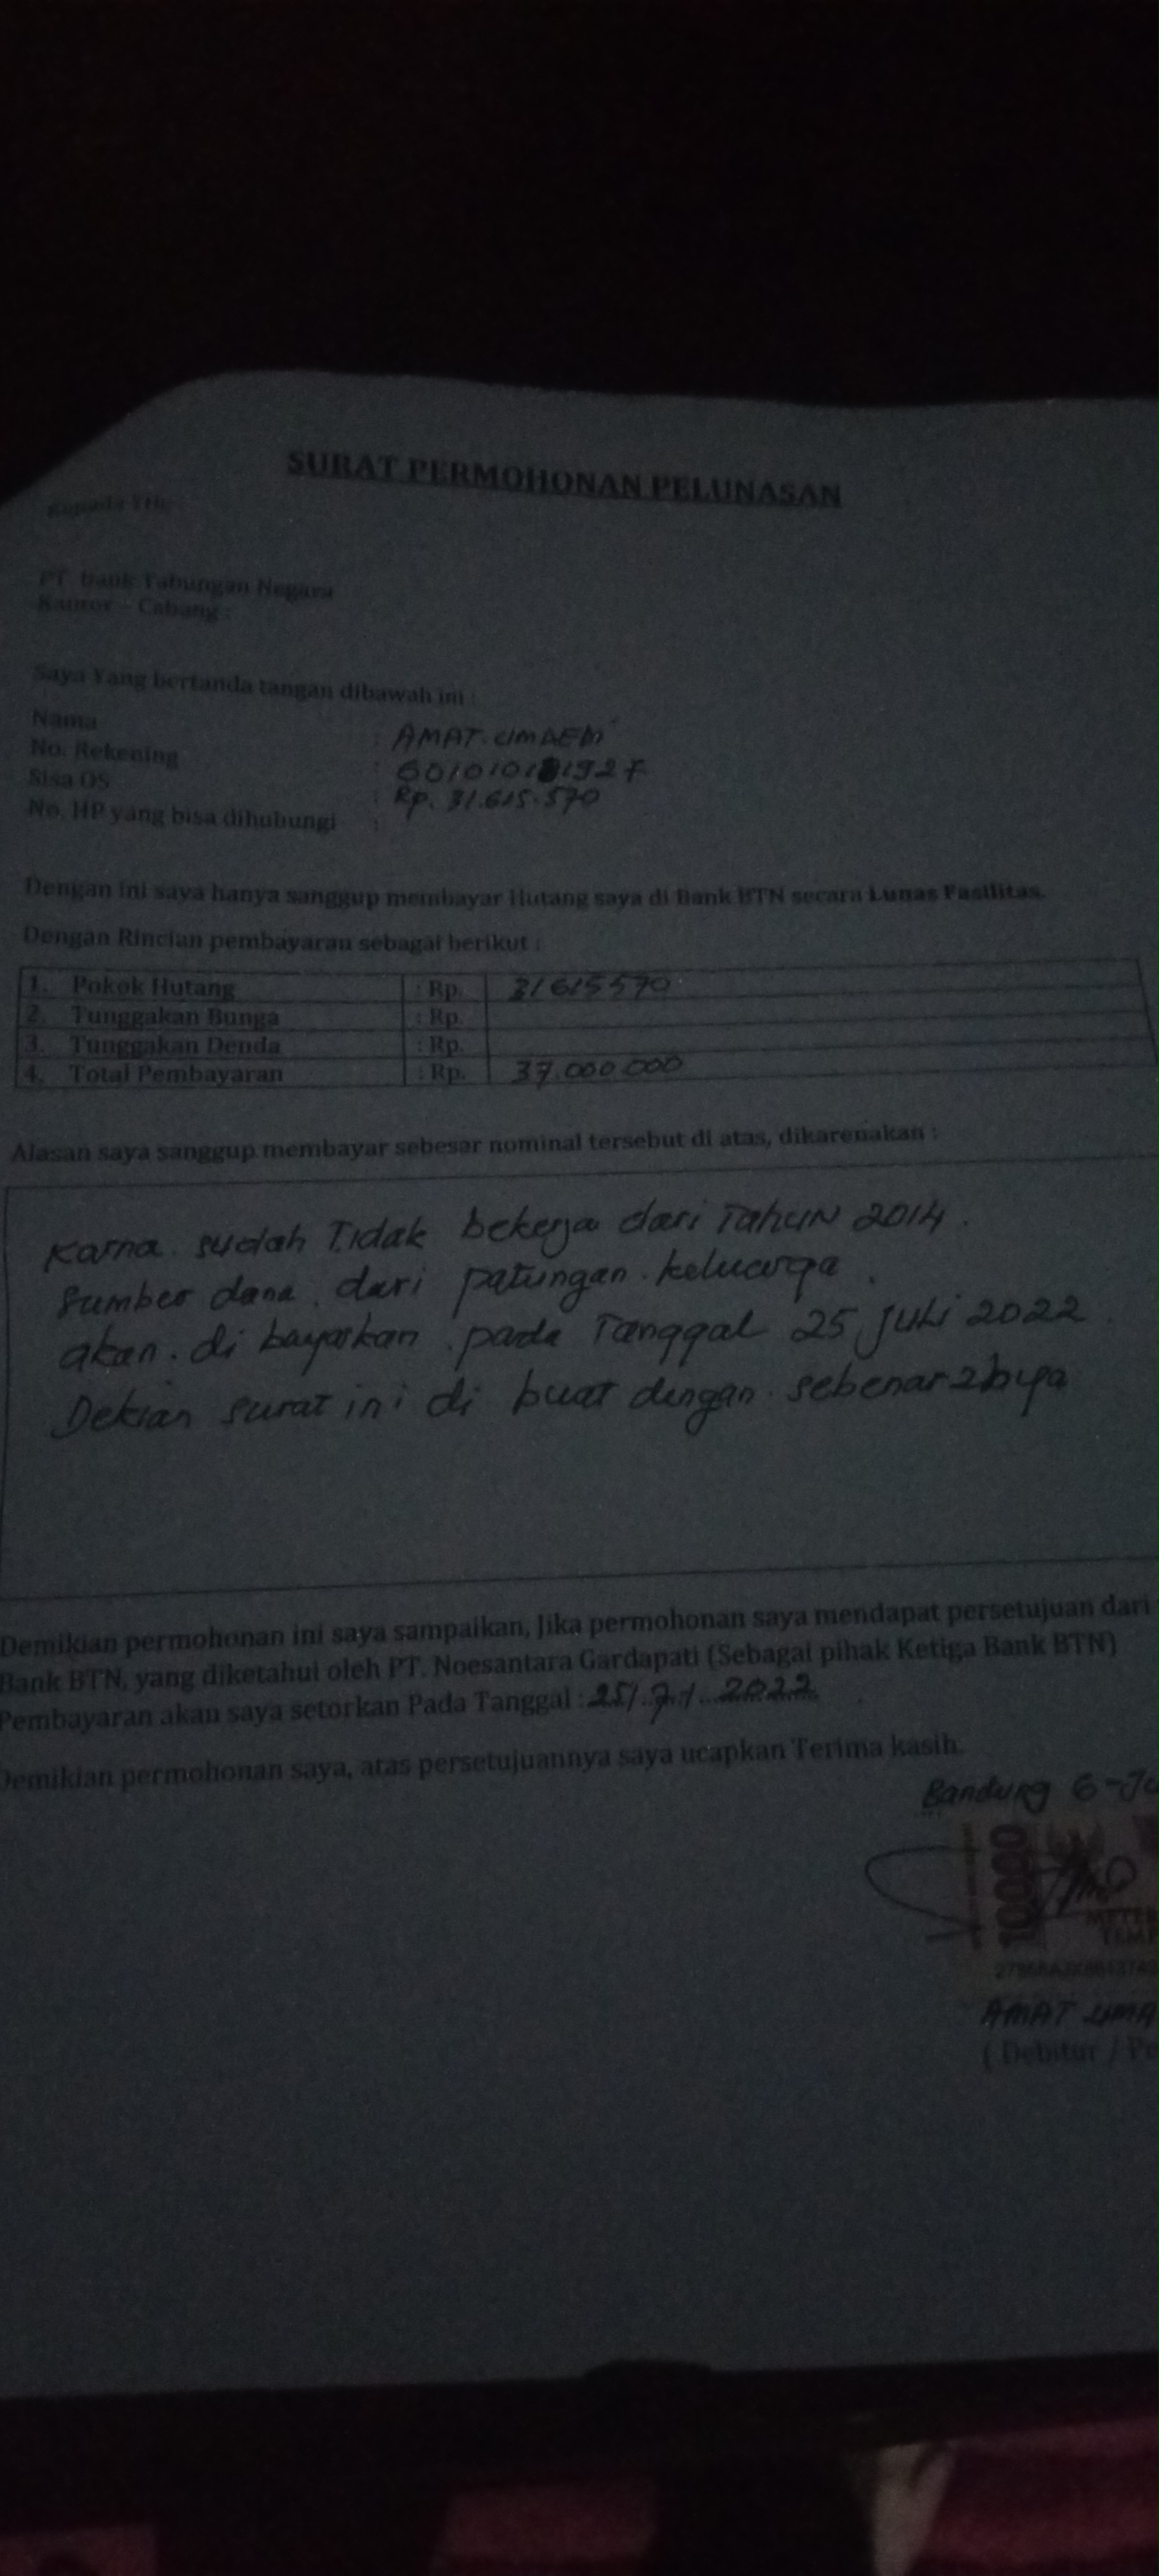 SURAT PERMOHONAN PELUNASAN
Kepada Yth,
PT Bank Tabungan Negara
Kantor - Cabang :
Saya Yang bertanda tangan dibawah ini :
Nama : AMAT
No. Rekening :
Sisa OS : Rp. 31.615.570
No. HP yang bisa dihubungi :
Dengan ini saya hanya sanggup membayar Hutang saya di Bank BTN secara Lunas Fasilitas.
Dengan Rincian pembayaran sebagai berikut :
1. Pokok Hutang : Rp. 31 615 570
2. Tunggakan Bunga : Rp.
3. Tunggakan Denda : Rp.
4. Total Pembayaran : Rp. 37.000 000
Alasan saya sanggup membayar sebesar nominal tersebut di atas, dikarenakan :
Karna sudah Tidak bekerja dari Tahun 2014.
Sumber dana dari patungan keluarga.
akan di bayarkan pada Tanggal 25 Juli 2022.
Dekian surat ini di buat dengan sebenar2nya
Demikian permohonan ini saya sampaikan, Jika permohonan saya mendapat persetujuan dari
Bank BTN, yang diketahui oleh PT. Noesantara Gardapati (Sebagai pihak Ketiga Bank BTN)
Pembayaran akan saya setorkan Pada Tanggal : 25/7/2022
Demikian permohonan saya, atas persetujuannya saya ucapkan Terima kasih.
Bandung 6-Ju
10000
METER
TEMP
AMAT UMA
( Debitur / Pe